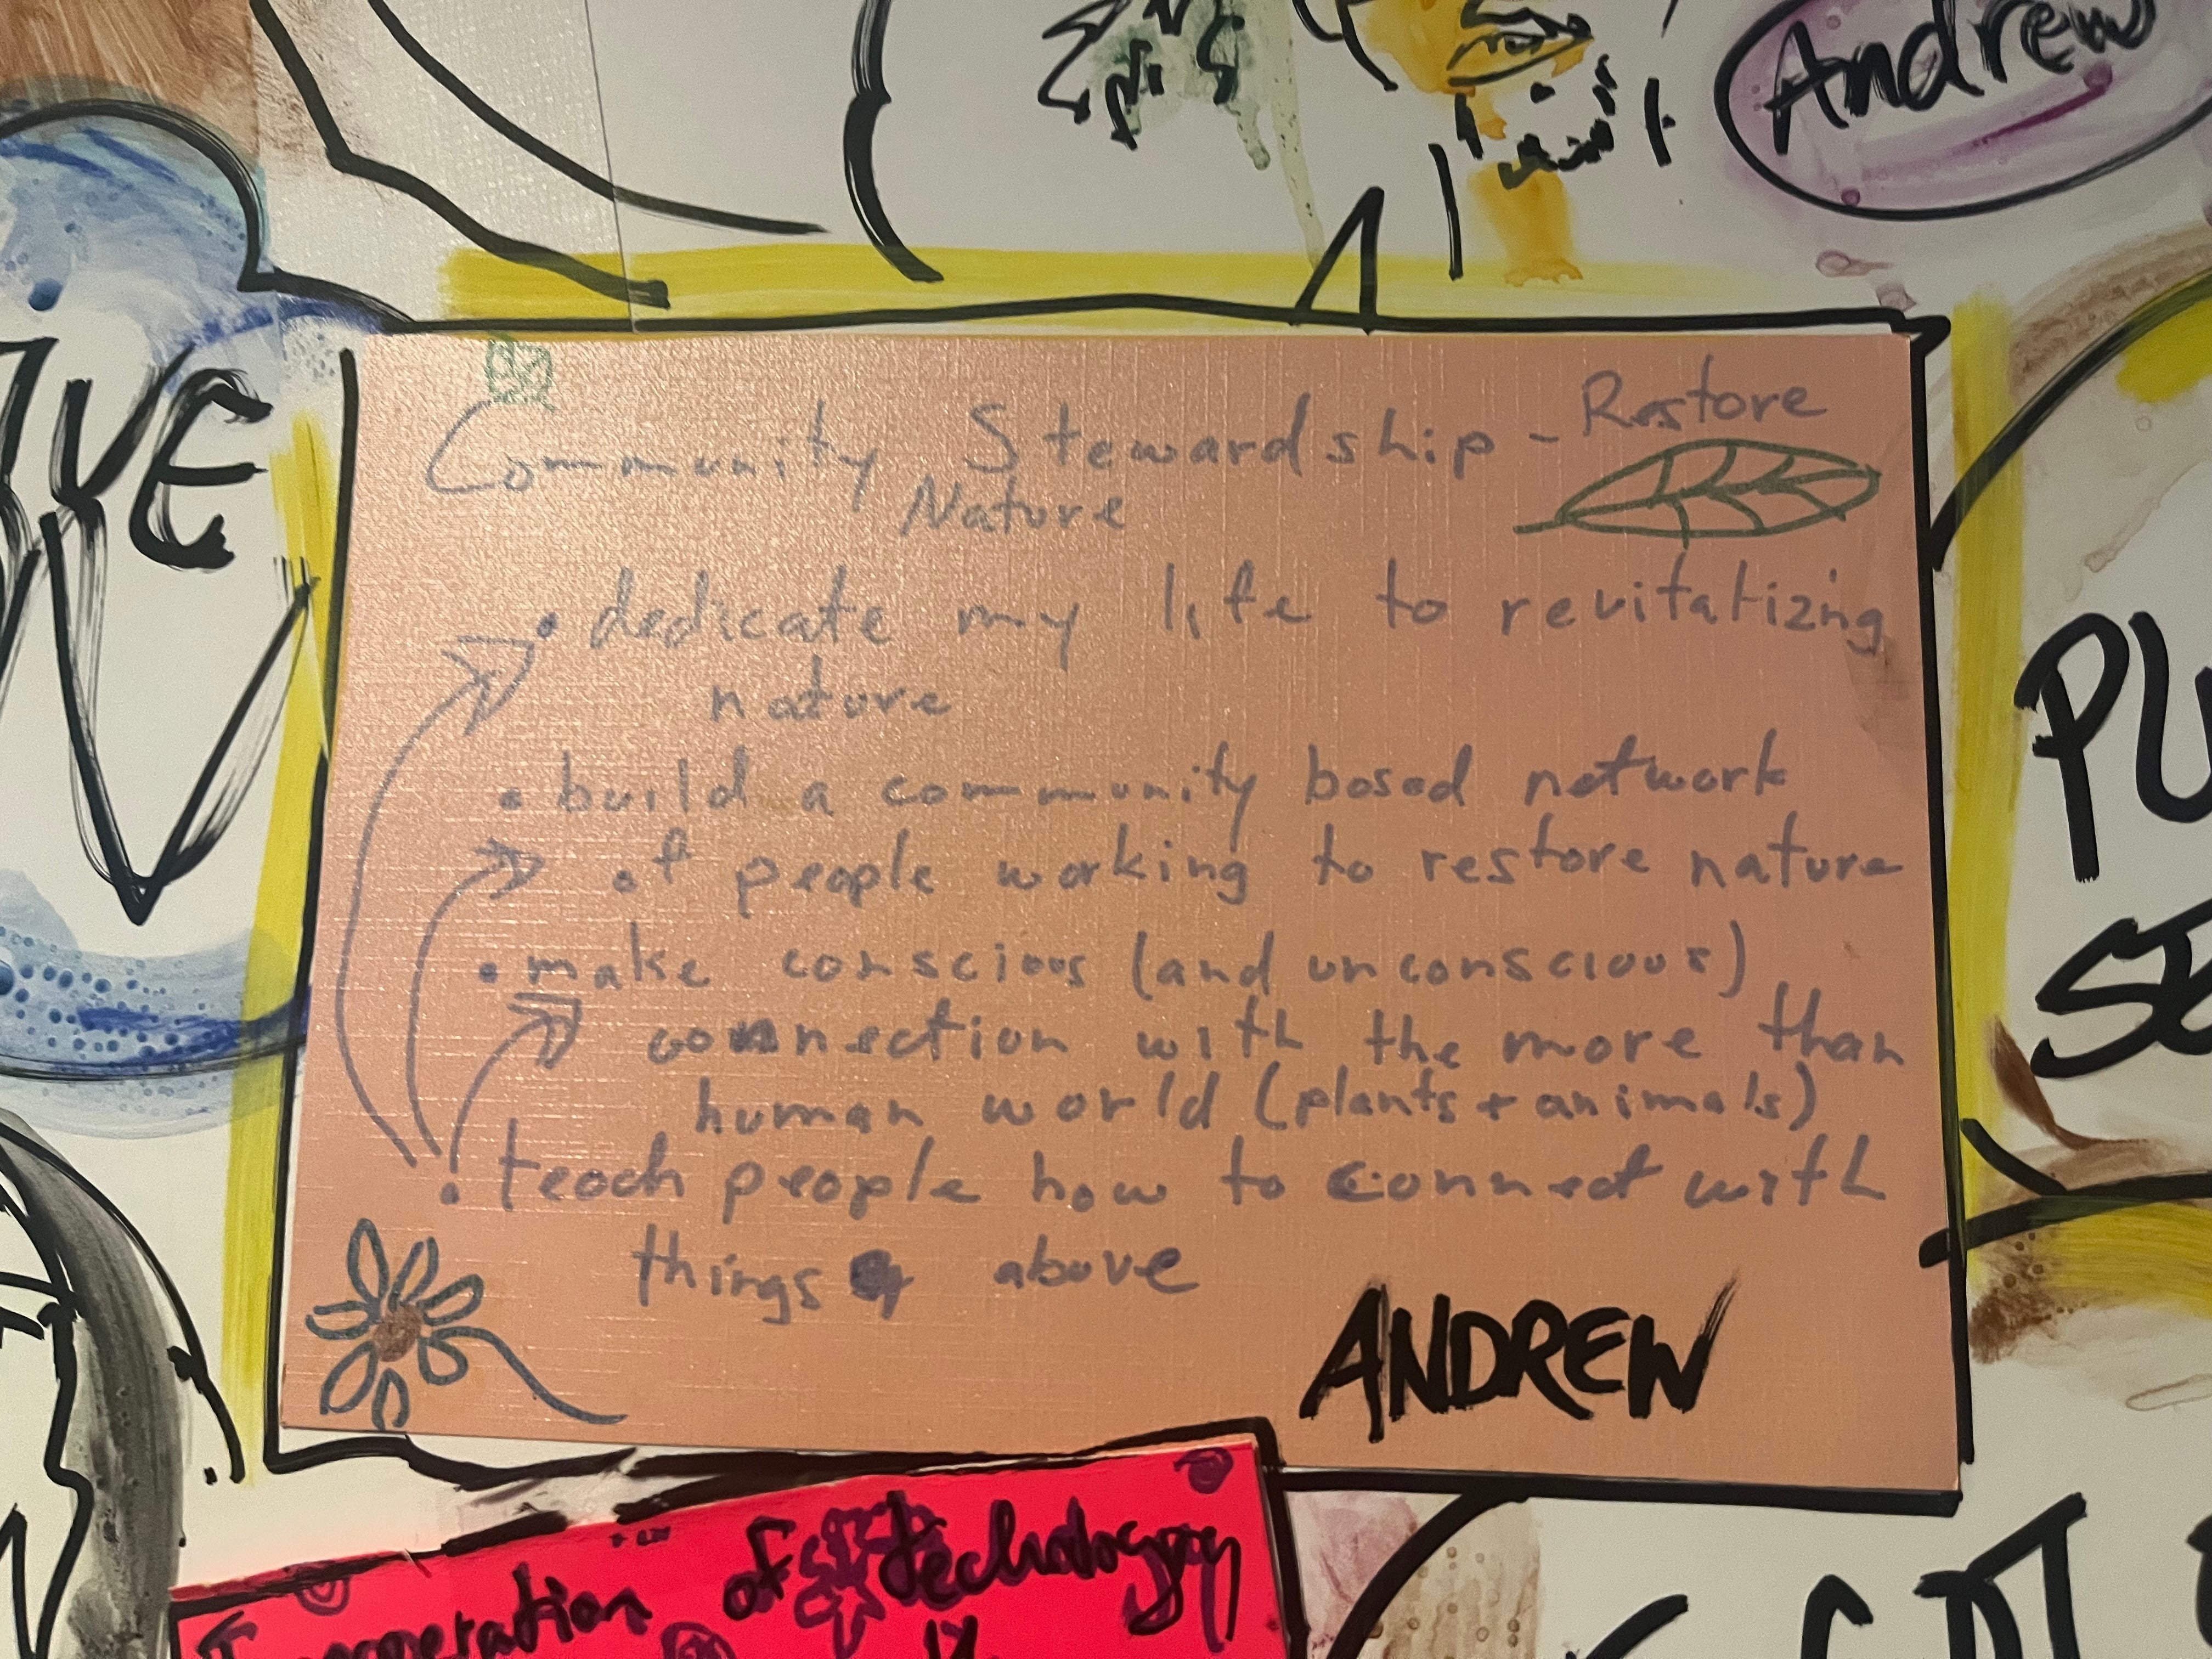 Andrew
Community Stewardship - Restore
Nature
• dedicate my life to revitalizing
nature
• build a community based network
of people working to restore nature
• make conscious (and unconscious)
connection with the more than
human world (plants + animals)
• teach people how to connect with
things above
ANDREW
of technology